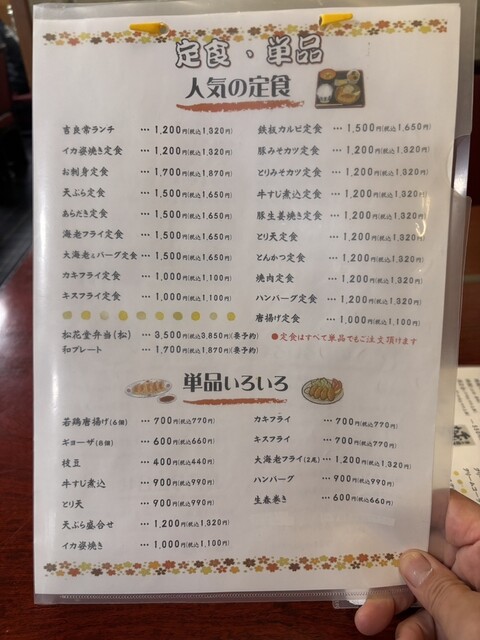 定食・単品
人気の定食
吉良常ランチ … 1,200円(税込1,320円)
イカ姿焼き定食 … 1,200円(税込1,320円)
お刺身定食 … 1,700円(税込1,870円)
天ぷら定食 … 1,500円(税込1,650円)
あらだき定食 … 1,500円(税込1,650円)
海老フライ定食 … 1,500円(税込1,650円)
大海老&バーグ定食 … 1,500円(税込1,650円)
カキフライ定食 … 1,000円(税込1,100円)
キスフライ定食 … 1,000円(税込1,100円)
松花堂弁当(松) … 3,500円(税込3,850円)(要予約)
和プレート … 1,700円(税込1,870円)(要予約)
鉄板カルビ定食 … 1,500円(税込1,650円)
豚みそカツ定食 … 1,200円(税込1,320円)
とりみそカツ定食 … 1,200円(税込1,320円)
牛すじ煮込定食 … 1,200円(税込1,320円)
豚生姜焼き定食 … 1,200円(税込1,320円)
とり天定食 … 1,200円(税込1,320円)
とんかつ定食 … 1,200円(税込1,320円)
焼肉定食 … 1,200円(税込1,320円)
ハンバーグ定食 … 1,200円(税込1,320円)
唐揚げ定食 … 1,000円(税込1,100円)
●定食はすべて単品でもご注文頂けます
単品いろいろ
若鶏唐揚げ(6個) … 700円(税込770円)
ギョーザ(8個) … 600円(税込660円)
枝豆 … 400円(税込440円)
牛すじ煮込 … 900円(税込990円)
とり天 … 900円(税込990円)
天ぷら盛合せ … 1,200円(税込1,320円)
イカ姿焼き … 1,000円(税込1,100円)
カキフライ … 700円(税込770円)
キスフライ … 700円(税込770円)
大海老フライ(2尾) … 1,200円(税込1,320円)
ハンバーグ … 900円(税込990円)
生春巻き … 600円(税込660円)